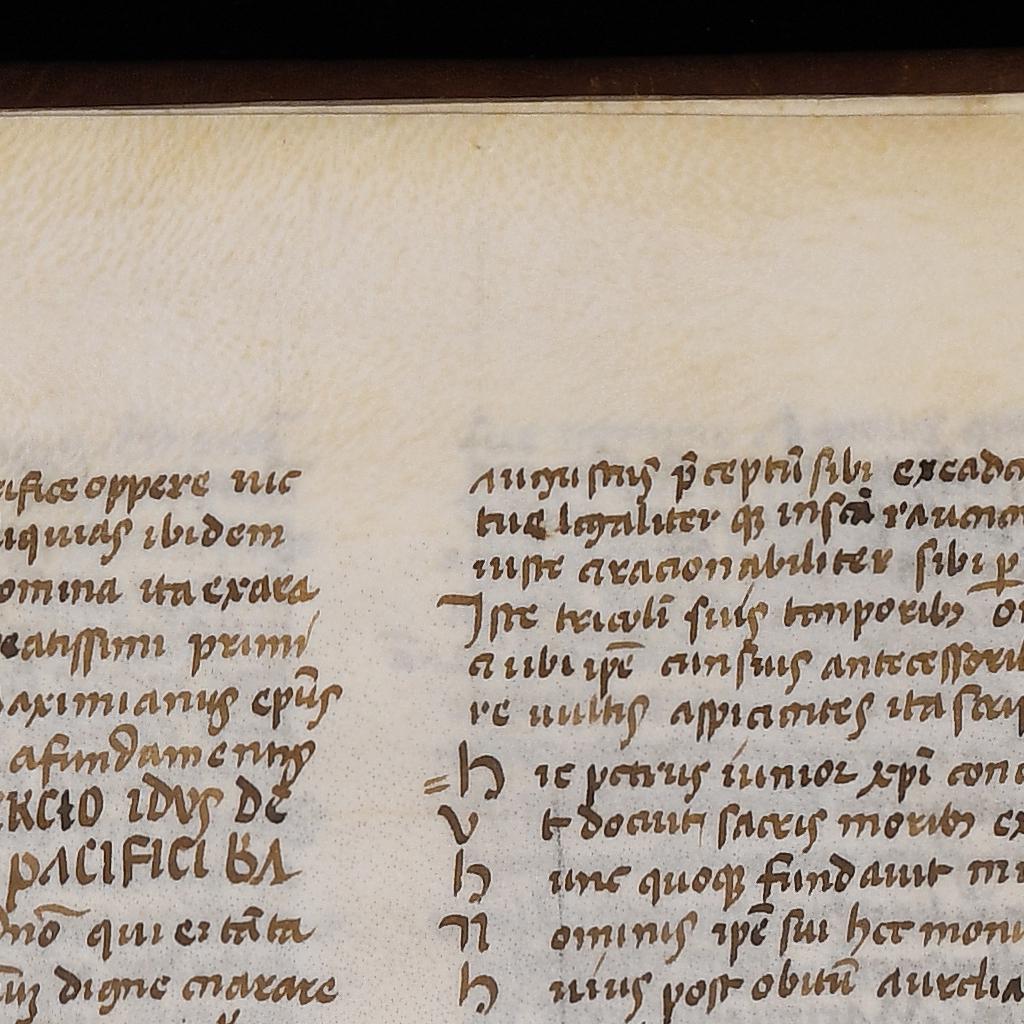 rifice oppere nic
iquias ibidem
omina ita exara
eatissimi primi
aximianus epūs
afundamentis
ERCIO IDVS DE
PACIFICI BA
dnō qui ei tāta
digne enarare
augustis p̄ceptū sibi exead
tue legaliter q; insca rauen
iuste aracionabiliter sibi p
Iste tricoli suis temporib; o
a ubi ipē cum suis antecessorib
re uultis aspicientes ita scrip
h ic petrus iunior xp̄i con
v t docuit sacris morib; ex
h unc quoq; fundauit
n ominis ipē sui hec monu
h uius post obitū aurelia